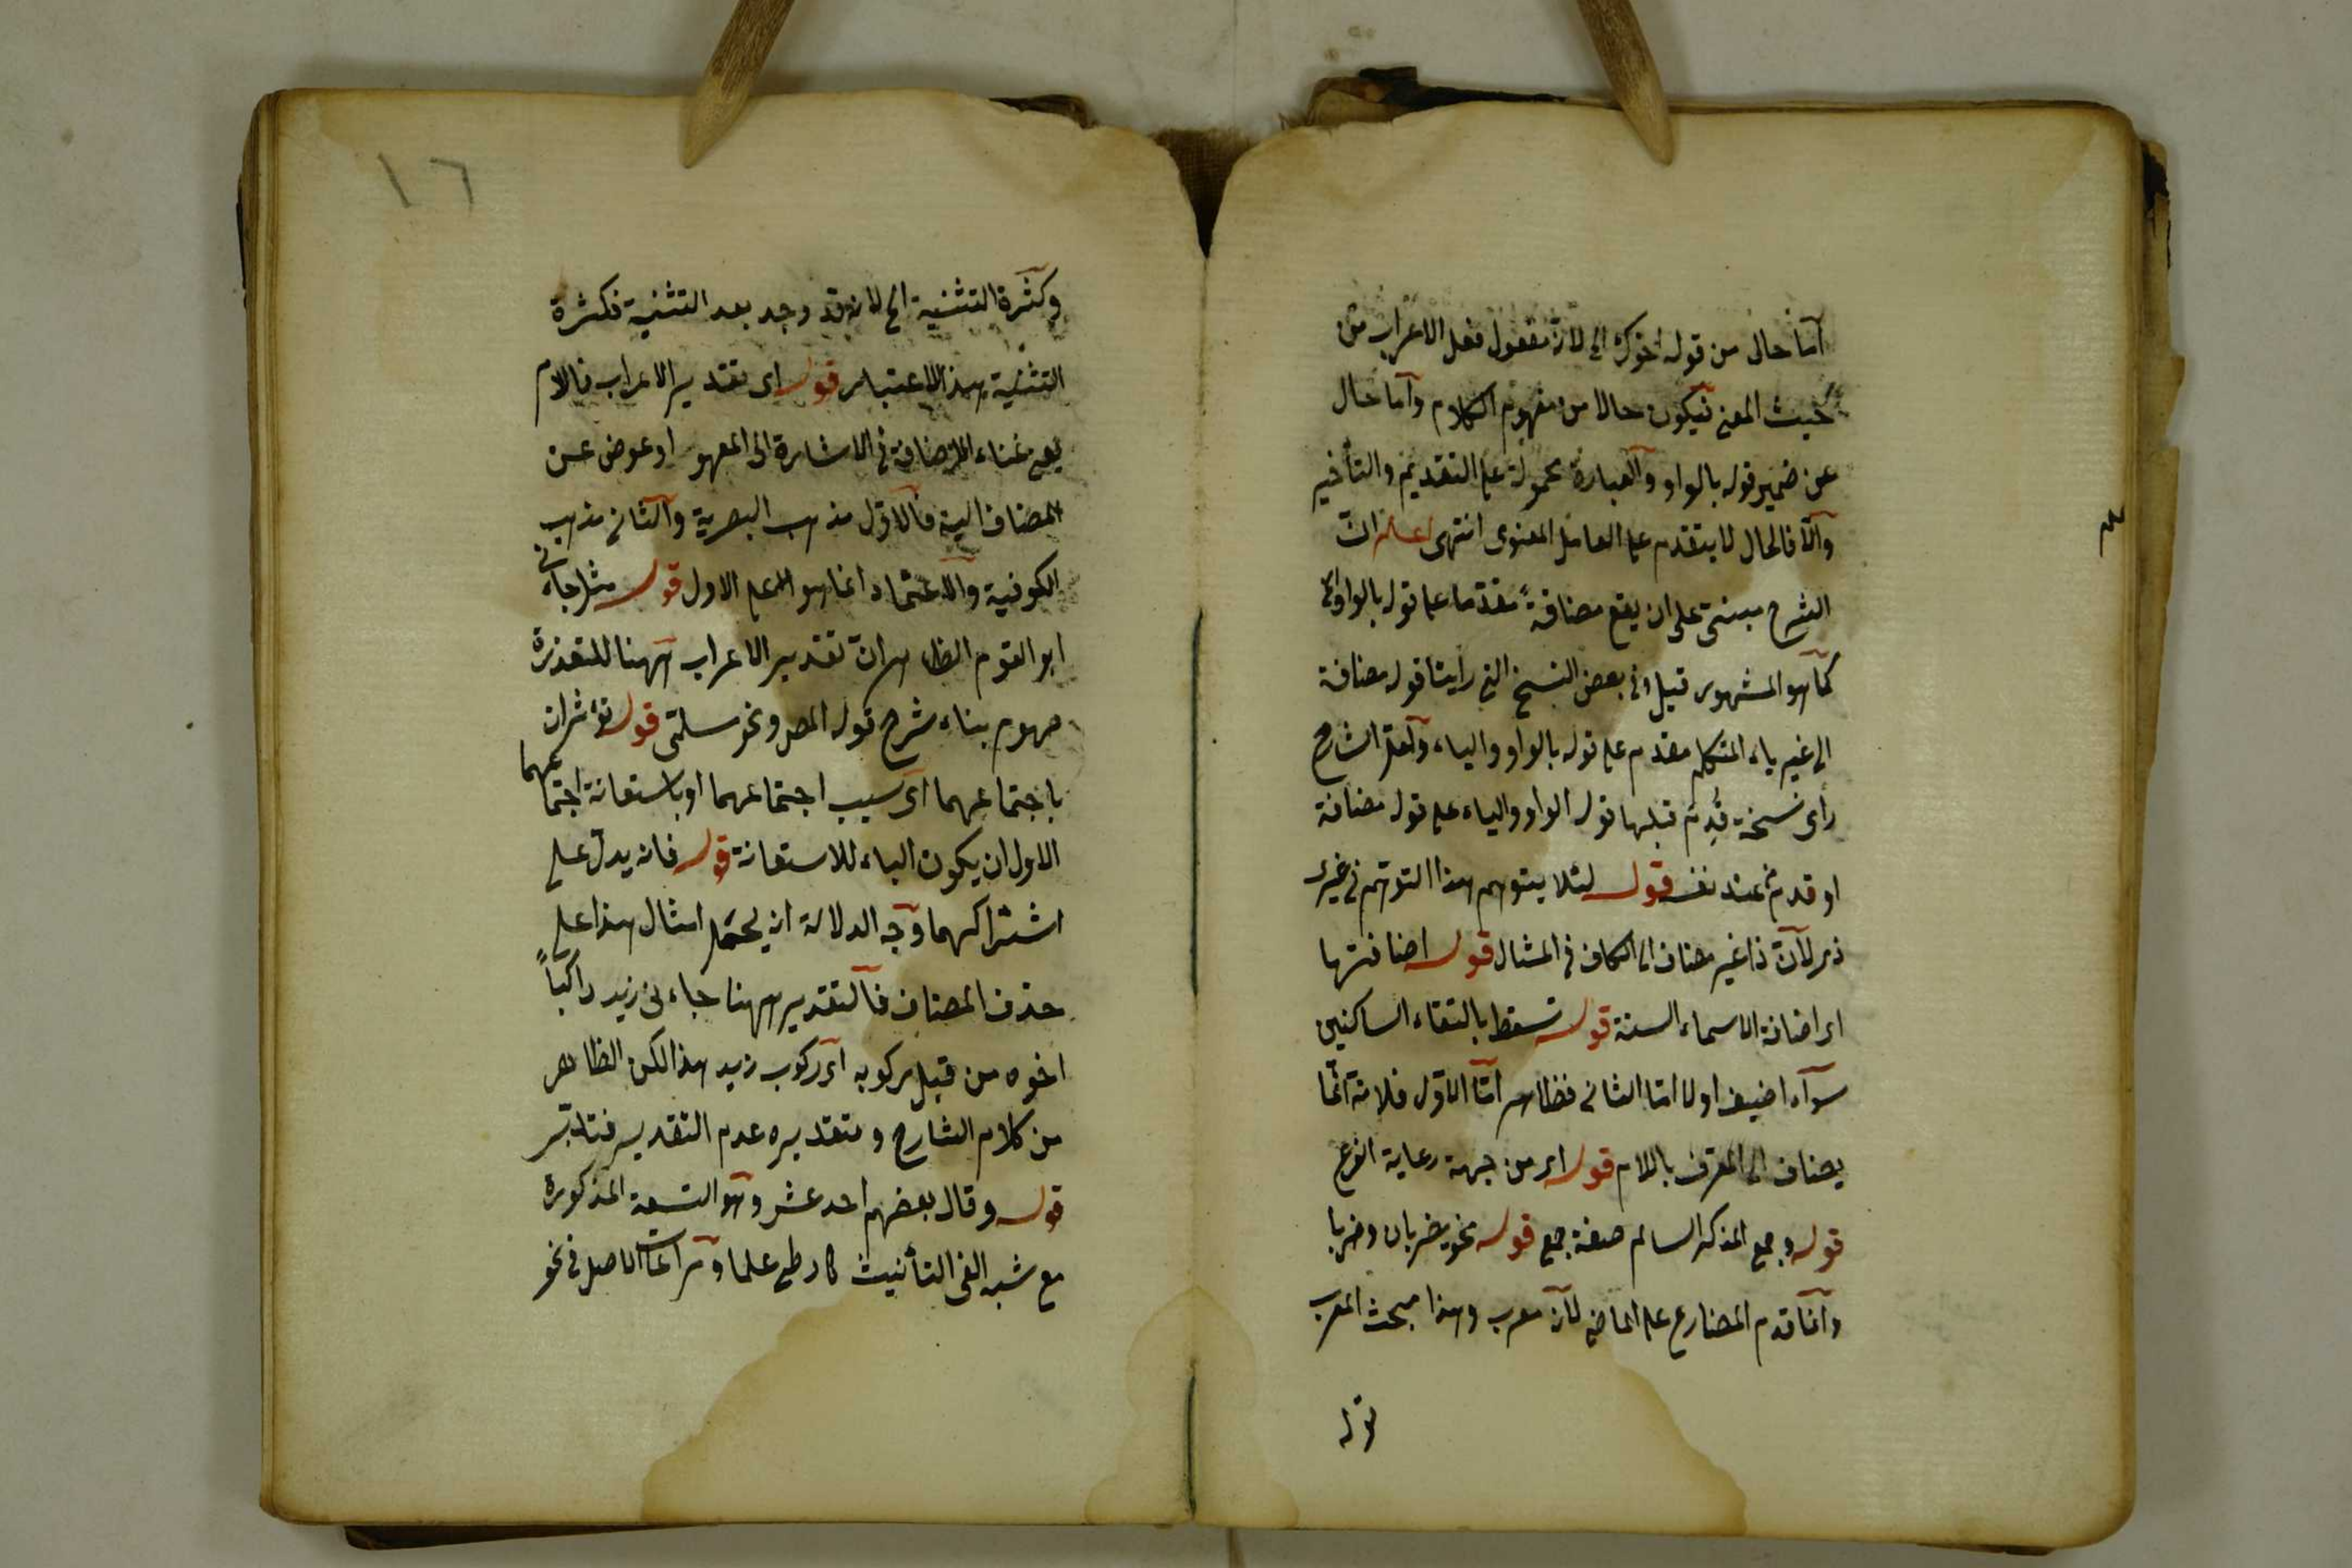 اما حال من قوله اخوك الى لانه مفعول فعل الاعراب من
حيث المعنى فيكون حالا من مفهوم الكلام واما حال
عن ضمير قوله بالواو والعبارة محمولة على التقديم والتأخير
والا فالحال لا يتقدم على العامل المعنوى انتهى اعلم ان
الشرح مبنى على ان يقع مضافة مقدما على قوله بالواو
كما هو المشهور قيل وفى بعض النسخ التى رأيتنا قوله مضافة
الى غير ياء المتكلم مقدم على قوله بالواو والياء ولعل الشارح
رأى نسخة قدم قبلها قوله الواو والياء على قوله مضافة
او قدم عند نفسه قوله لئلا يتوهم هذا التوهم فى غير
ذر لان ذا غير مضاف الى الكاف فى المثال قوله اضافتها
اى اضافة الاسماء الستة قوله تسقط بالتقاء الساكنين
سواء اضيف اولا اما الثانى فظاهر اما الاول فلانه انما
يضاف الى المعرف باللام قوله اى من جهة رعاية الفرع
قوله وجمع المذكر السالم صفة جمع قوله نحو يضربان وضربا
وانما قدم المضارع على الماضى لانه معرب وهذا مبحث المعرب
قوله
١٦
وكثرة التثنية الخ لانه قد وجد بعد التثنية فكثرة
التثنية بهذا الاعتبار قوله اى تقدير الاعراب فاللام
يغنى غناء الاضافة فى الاشارة الى المعهود او عوض عن
المضاف اليه فالاول مذهب البصرية والثانى مذهب
الكوفية والاعتماد انما هو على الاول قوله مثل جاءنى
ابو القوم الظاهر ان تقدير الاعراب ههنا للتعذر
مهوم بناء شرح قوله المص ونحو مسلمى قوله تؤثران
باجتماعهما اى سبب اجتماعهما او باستعانة اجتماعهما
الاول ان يكون الباء للاستعانة قوله فانه يدل على
اشتراكهما وجه الدلالة انه يحمل امثال هذا على
حذف المضاف فالتقدير ههنا جاءنى زيد راكباً
اخوه من قبل ركوبه اى ركوب زيد هذا لكن الظاهر
من كلام الشارح وتقديره عدم التقدير فتدبر
قوله وقال بعضهم احد عشر وهو التسعة المذكورة
مع شبه الفى التأنيث كارطى علما ومراعات الاصل فى نحو